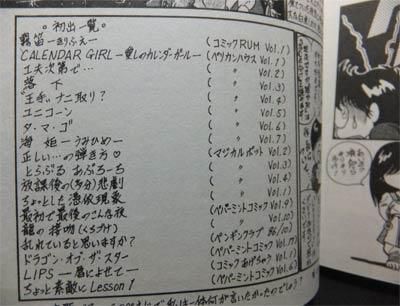 ◦初出一覧◦
霧笛—きりぶえ— (コミックRUM Vol.1)
CALENDAR GIRL—愛しのカレンダーガール— (ペリカンハウス Vol.1)
工夫次第で… ( 〃 Vol.2)
落下 ( 〃 Vol.3)
王手!ナニ取り? ( 〃 Vol.4)
ユニコーン ( 〃 Vol.5)
タ・マ・ゴ ( 〃 Vol.6)
海姫—うみひめ— ( 〃 Vol.7)
正しい…の弾き方♡ (マジカルポット Vol.2)
とらぶる あぷろーち ( 〃 Vol.3)
放課後の(多分)悲劇 ( 〃 Vol.4)
ちょっとした憑依現象 ( 〃 Vol.1)
最初で最後のこんな夜 (ペパーミントコミック Vol.9)
龍の接吻(くちづけ) ( 〃 Vol.10)
乱れていると思いますか? (ペンギンクラブ
ドラゴン・オブ・ザ・スター (ペパーミントコミック
LIPS—唇によせて— (コミックあげちゃう Vol.1)
ちょっと素敵にLesson 1 (ペパーミントコミック Vol.6)